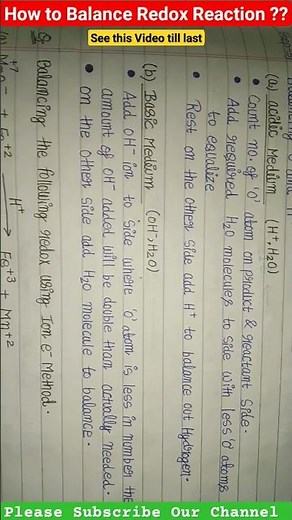 How to Balance Redox Reaction ??
See this Video till last
(a) acidic Medium (H⁺, H₂O)
• Count no. of 'o' atom on product & reactant side.
• Add required H₂O molecules to side with less 'o' atoms
to equalize
• Rest on the other side add H⁺ to balance out Hydrogen.
(b) Basic Medium (OH⁻, H₂O)
• Add OH⁻ ion to side where 'o' atom is less in number the
amount of OH⁻ added will be double than actually needed.
• On the Other side add H₂O molecule to balance.
Q. Balancing the following redox using Ion e⁻ Method.
+ Fe⁺² H⁺ → Fe⁺³ + Mn⁺²
Please Subscribe Our Channel